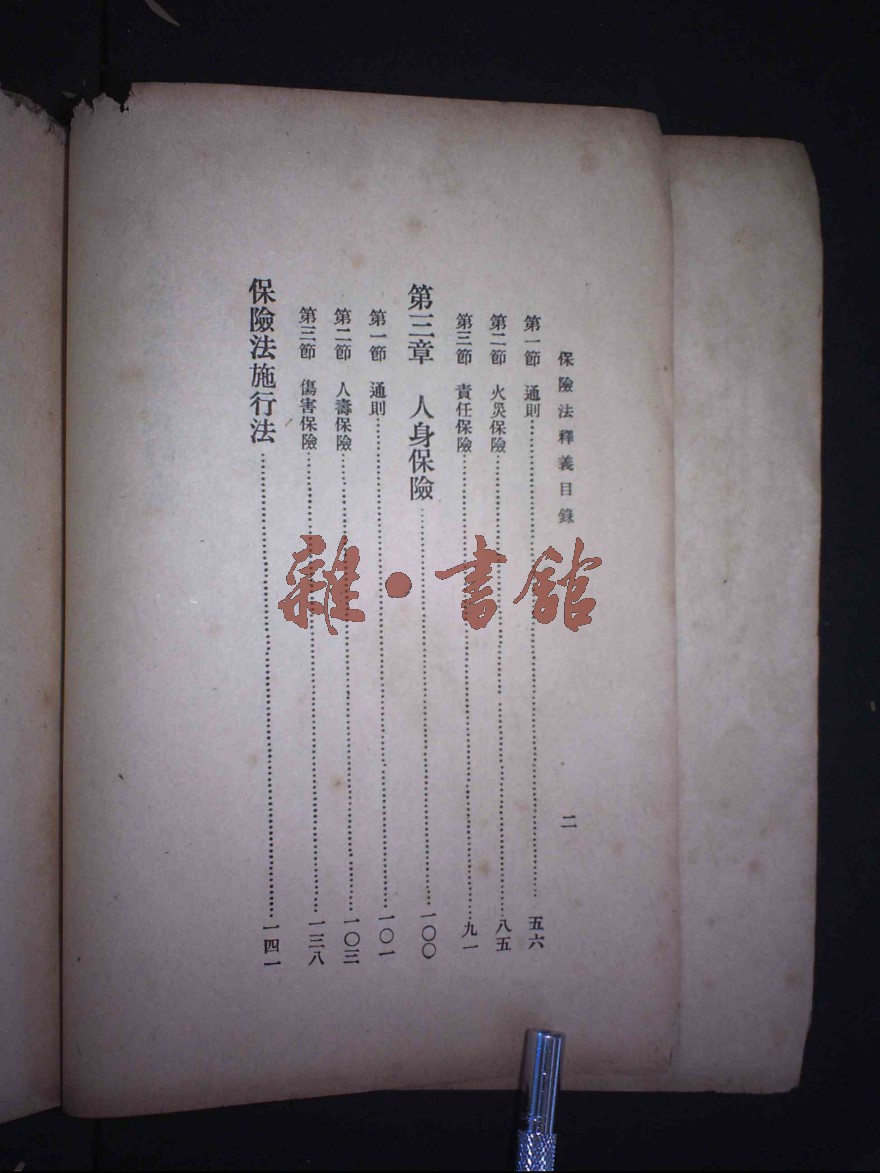 保險法釋義目錄 二
第一節 通則……五六
第二節 火災保險……八五
第三節 責任保險……九一
第三章 人身保險……一〇〇
第一節 通則……一〇一
第二節 人壽保險……一〇三
第三節 傷害保險……一三八
保險法施行法……一四一
雜·書館